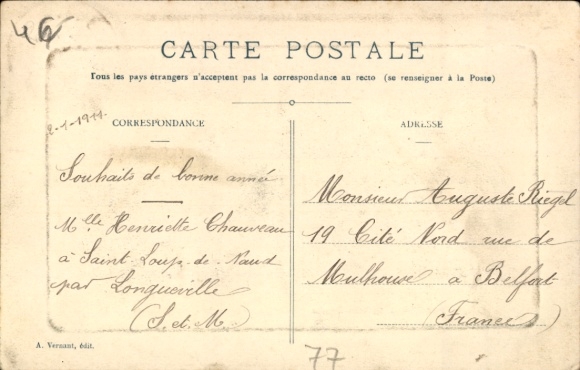 46
CARTE POSTALE
Tous les pays étrangers n'acceptent pas la correspondance au recto (se renseigner à la Poste)
2-1-1911.
CORRESPONDANCE
Souhaits de bonne année
Mlle Henriette Chauveau
à Saint-Loup-de-Naud
par Longueville
(S. et. M.)
ADRESSE
Monsieur Auguste Riegel
19 Cité Nord rue de
Mulhouse à Belfort
(France)
A. Vernant, édit.
77